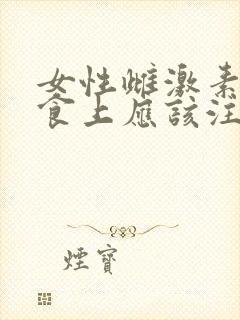 女性雌激素
食上應該注
煙寶